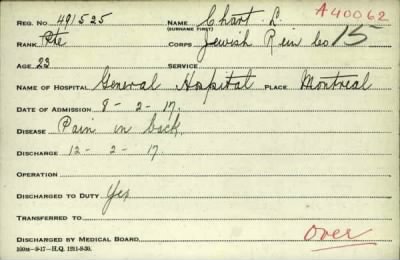 Reg. No. 491525 Name Chart. L. A40062
(Surname First)
Rank Pte Corps Jewish Rein Co 15
Age 23 Service
Name of Hospital General Hospital Place Montreal
Date of Admission 8 - 2 - 17.
Disease Pain in back.
Discharge 12 - 2 - 17.
Operation
Discharged to Duty Yes
Transferred to
Discharged by Medical Board Over
160M-9-17-H.Q. 1211-8-30.